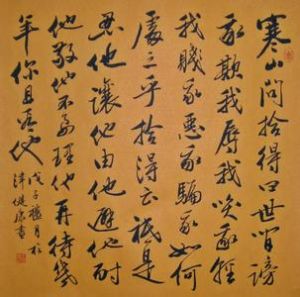 寒山問拾得曰世间谤
我欺我辱我笑我轻
我賤我惡我騙我如何
處之乎拾得云祇是
忍他讓他由他避他耐
他敬他不要理他再待幾
年你且看他
戊子月於
津健康書